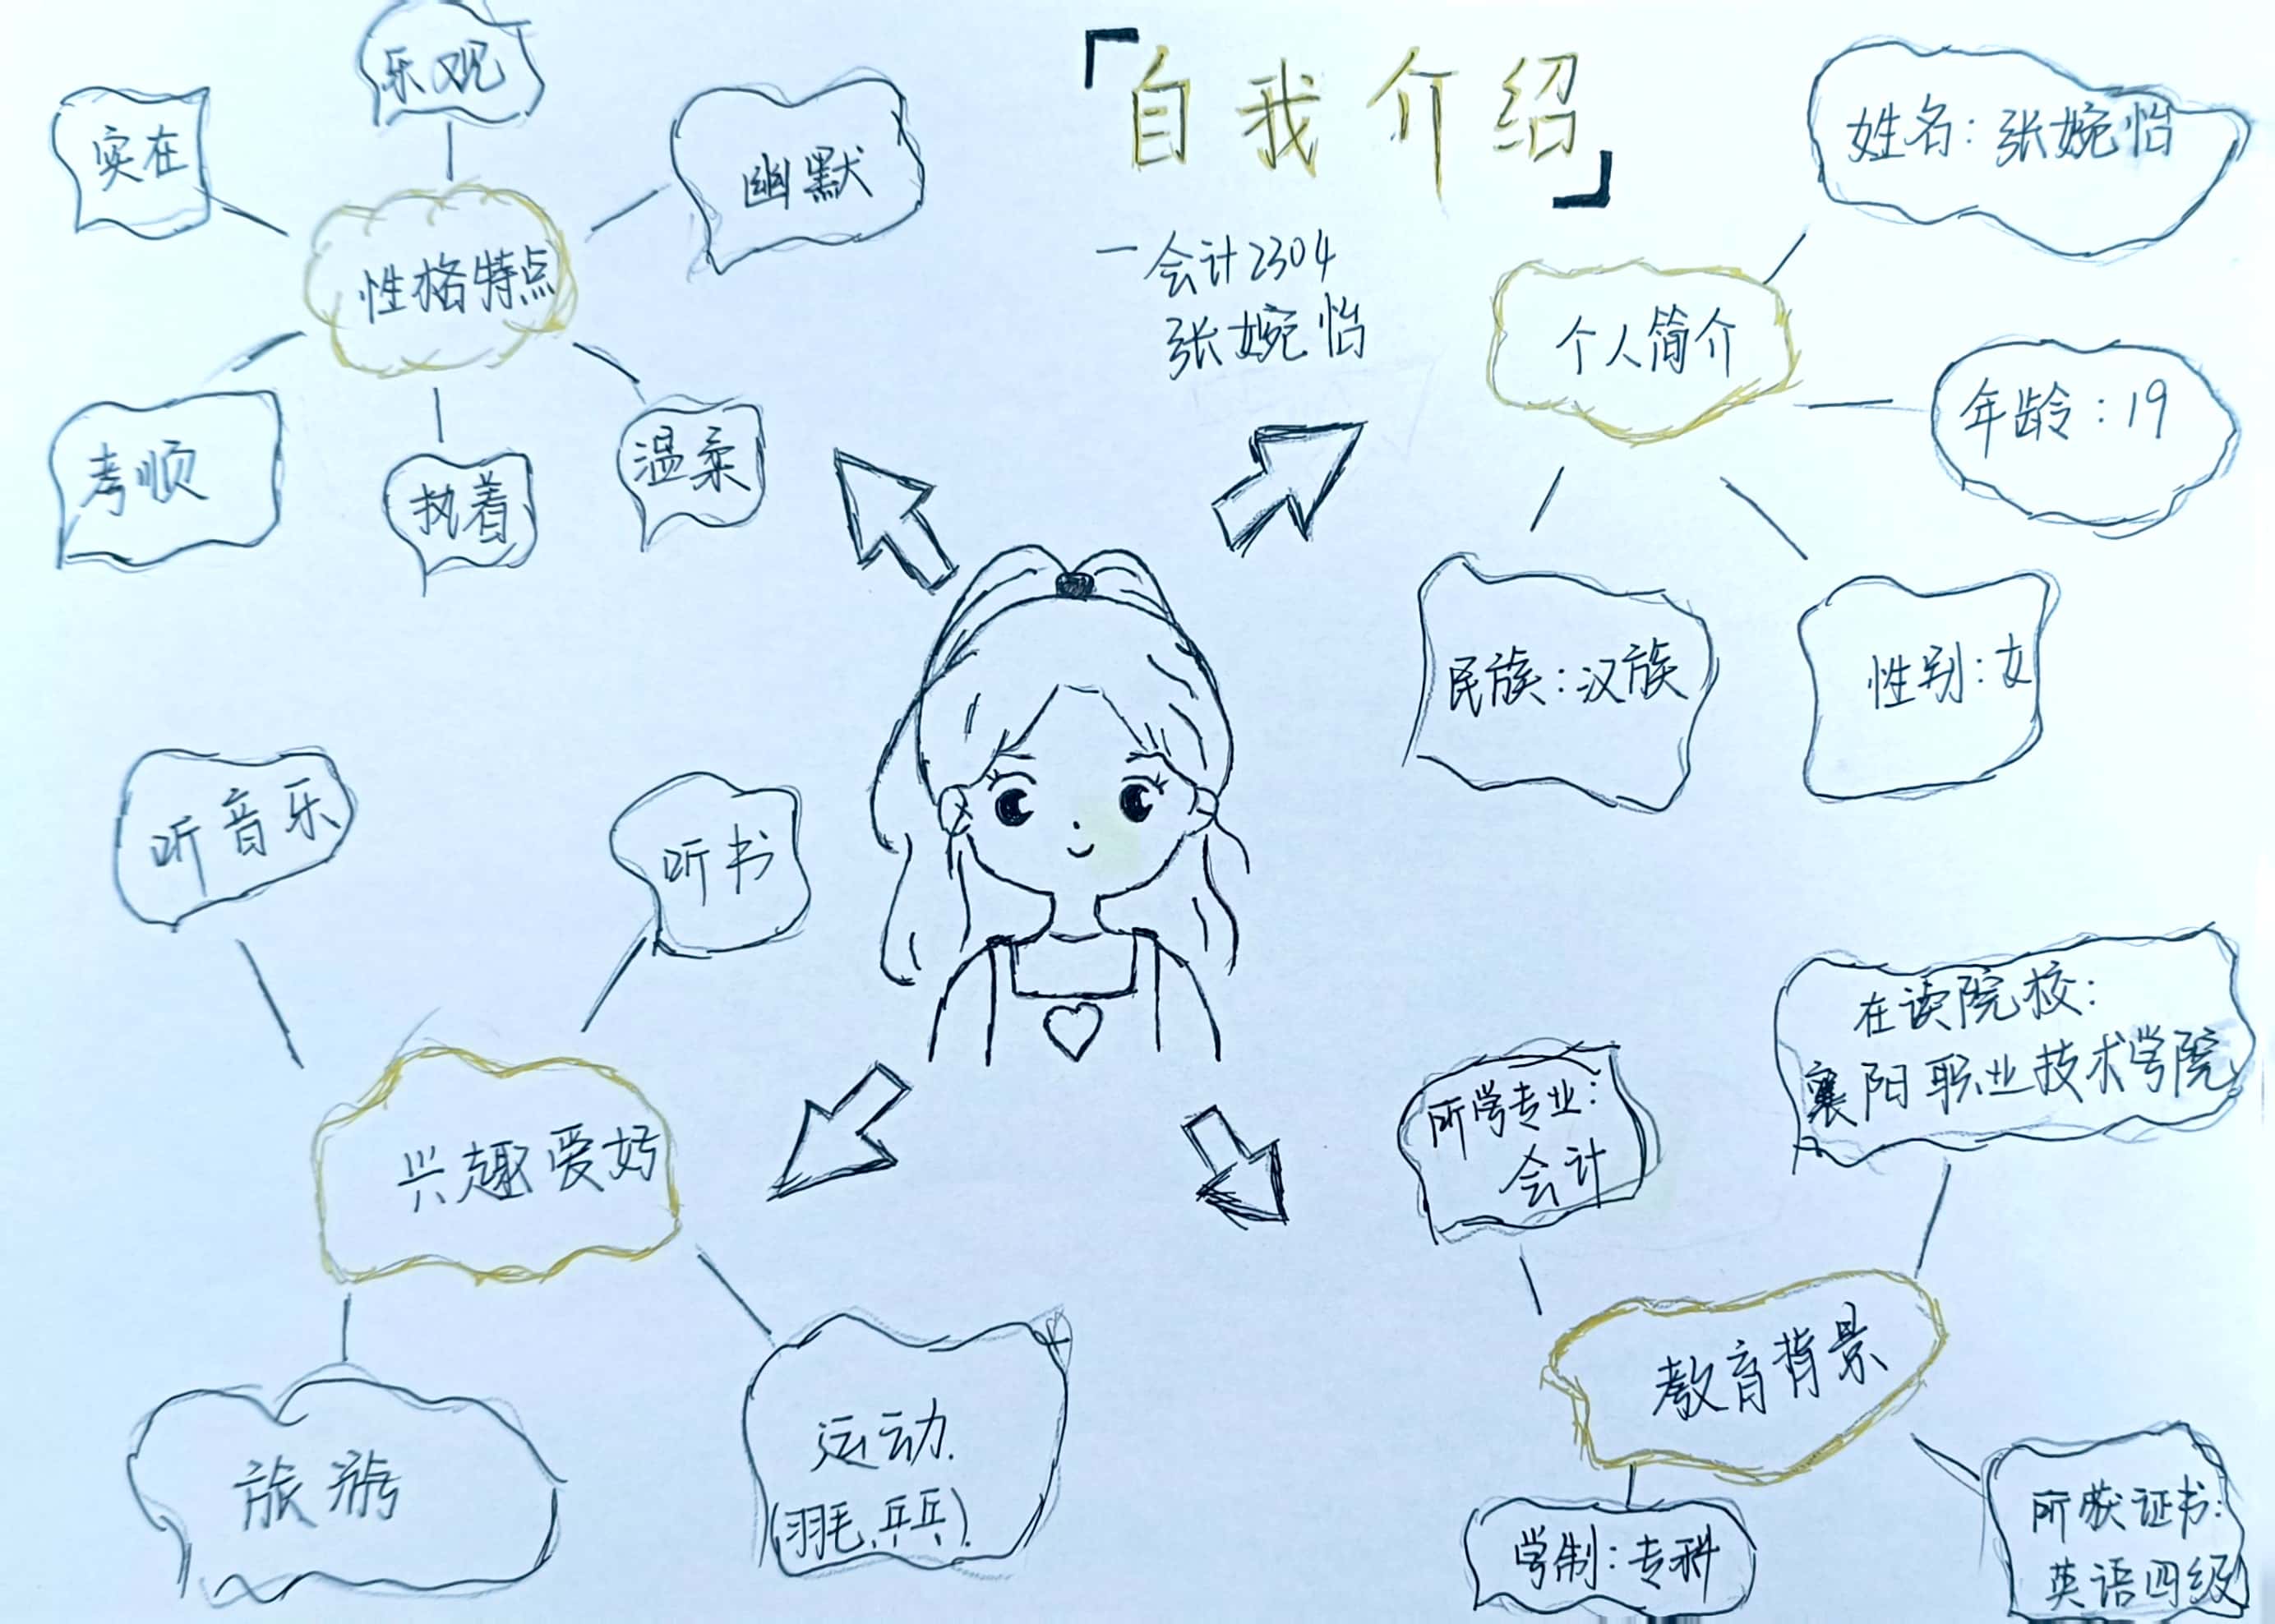 「自我介绍」
一会计2304
张婉怡
性格特点
实在
乐观
幽默
孝顺
执着
温柔
个人简介
姓名：张婉怡
年龄：19
民族：汉族
性别：女
兴趣爱好
听音乐
听书
旅游
运动.
(羽毛,乒乓).
教育背景
所学专业：
会计
在读院校：
襄阳职业技术学院
学制：专科
所获证书：
英语四级